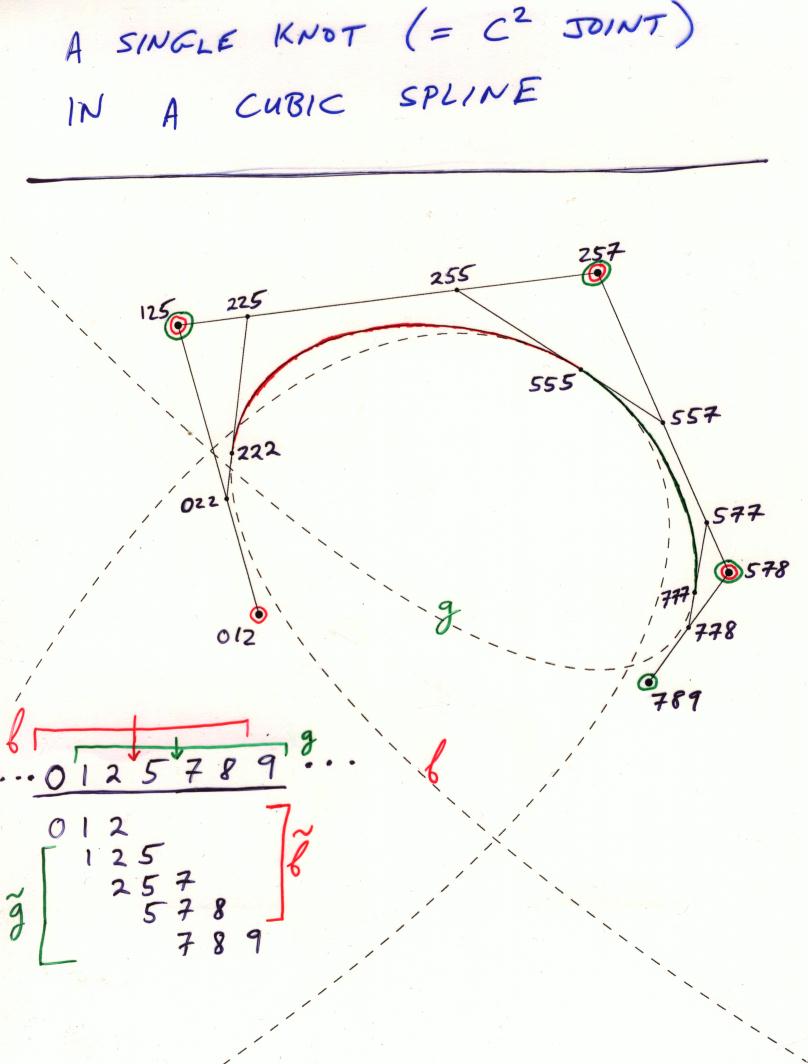 A SINGLE KNOT (= C² JOINT)
IN A CUBIC SPLINE
257
255
125
225
555
557
222
022
577
578
777
778
012
789
g
f
f g
... 0 1 2 5 7 8 9 ...
0 1 2
1 2 5
2 5 7
5 7 8
7 8 9
f̃
g̃